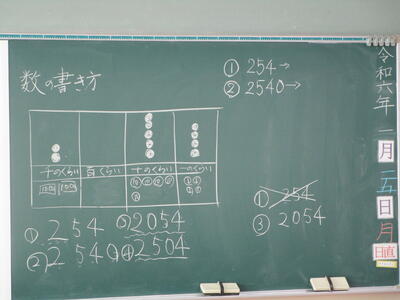 数の書き方
① 254→
② 2540→
千のくらい 百くらい 十のくらい 一のくらい
1000 1000 10 10 10 10 10
① 254 ③ 2054
② 2540 ④ 2504
① 254
③ 2054
令和六年 一月 五日 月
日直